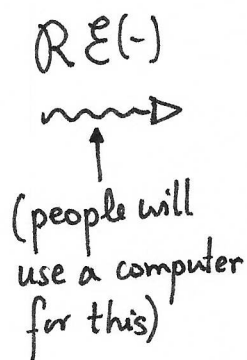 R ℰ(-)
(people will
use a computer
for this)